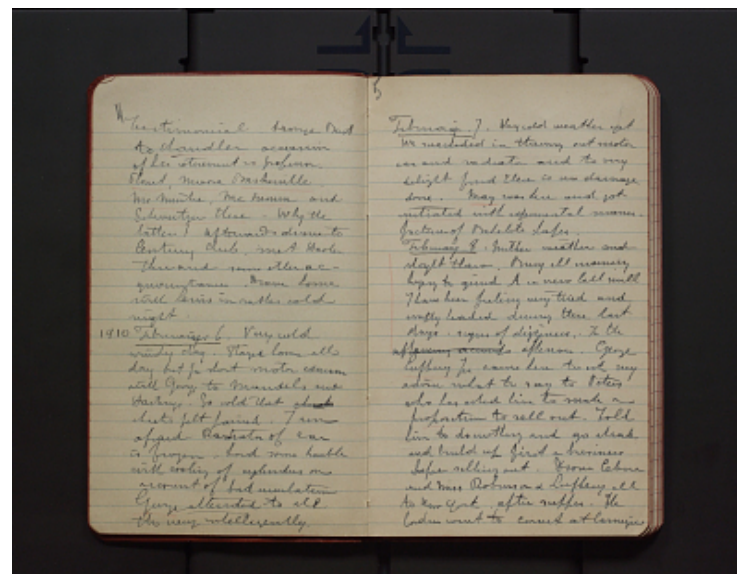 Testimonial
to Chandler occasion
of his retirement as professor.
Stout, Moore Baskerville
and
there. Why the
latter? afterwards drove to
Century Club, met
some other ac-
quaintance. Drove home
with in rather cold
night.
1910 February 6. Very cold
windy day. Stayed home all
day but for short motor excursion
with Goey to Mandels and
Hastings. So cold that
feet pained. I am
afraid Radiator of car
is frozen. had some trouble
with cooling of cylinders on
account of bad circulation
George attended to all
this very intelligently
5
February 7. Very cold weather yet
We succeeded in thawing out motor
car and radiator and to my
delight found there is no damage
done. May was here and got
initiated with experimental manu-
facture of Bakelite
February 8. Milder weather and
slight thaw. Busy all morning
trying to grind A in new ball mill
I have been feeling very tired and
during these last
days. signs of dizziness. In the
afternoon. George
came here to ask my
advise what to say to Peters
who has asked him to make a
proposition to sell out. Told
him to do nothing and go ahead
and build up first a business
before selling out.
and Miss Robinson and all
to New York after supper. The
ladies went to concert at Carnegie